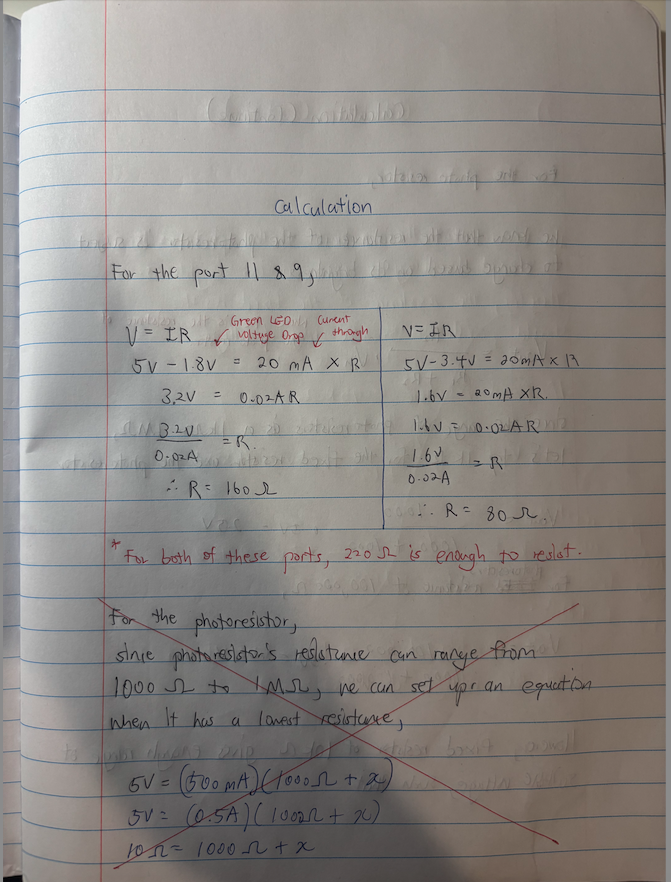 Calculation
For the port 11 & 9,
V = IR
Green LED
voltage Drop
Current
through
5V - 1.8V = 20 mA × R
3.2V = 0.02A R
3.2V
0.02A
= R.
∴ R = 160 Ω
V = IR
5V - 3.4V = 20mA × R
1.6V = 20mA × R.
1.6V = 0.02A R
1.6V
0.02A
= R
∴ R = 80 Ω.
* For both of these ports, 220 Ω is enough to resist.
For the photoresistor,
since photoresistor's resistance can range from
1000 Ω to 1MΩ, we can set up an equation
when it has a lowest resistance,
5V = (500 mA)(1000 Ω + x)
5V = (0.5A)(1000Ω + x)
10 Ω = 1000 Ω + x